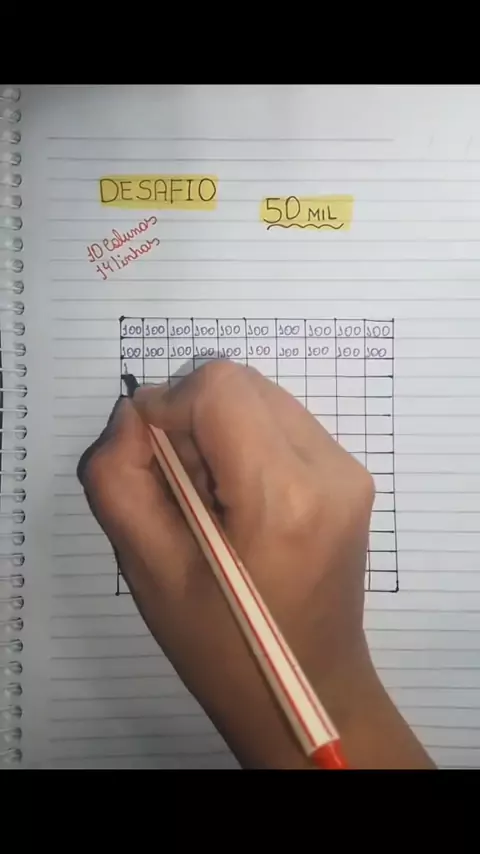 DESAFIO
50 MIL
10 Colunas
14 linhas
100 100 100 100 100 100 100 100 100 100
100 100 100 100 100 100 100 100 100 100